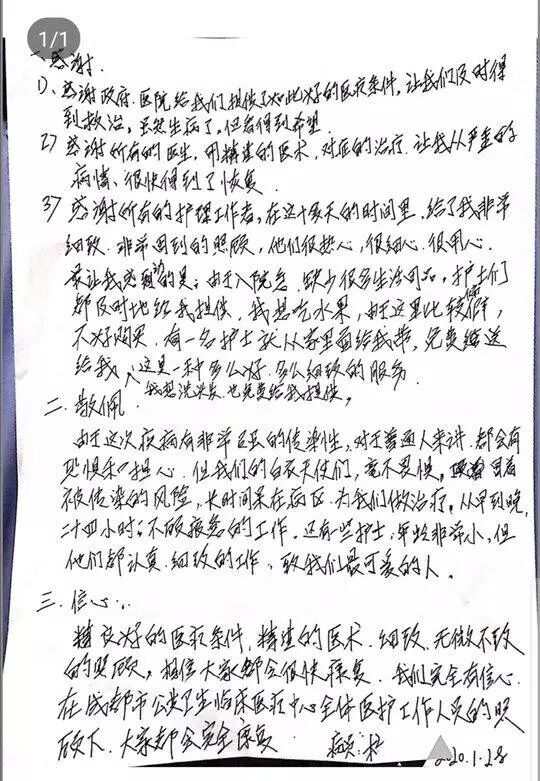 1/1
一、感谢.
1)、感谢政府.医院给我们提供了如此好的医疗条件,让我们及时得
到救治,虽然生病了,但看得到希望.
2) 感谢所有的医生,用精湛的医术,对症的治疗.让我从严重的
病情、很快得到了恢复.
3) 感谢所有的护理工作者,在这十多天的时间里,给了我非常
细致.非常周到的照顾,他们很热心,很细心.很用心.
最让我感动的是:由于入院急,缺少很多生活用品,护士们
都及时地给我提供,我想吃水果,由于这里比较偏僻,
不好购买.有一名护士就从家里面给我带,免费赠送
给我,这是一种多么好.多么细致的服务.
我想洗头.也免费给我提供。
二.敬佩.
由于这次疫病有非常强的传染性,对于普通人来讲.都会有
恐惧和担心.但我们的白衣天使们,毫不畏惧,冒着
被传染的风险,长时间呆在病区.为我们做治疗,从早到晚,
二十四小时.不顾疲惫的工作.还有些护士,年龄非常小,但
他们都认真.细致的工作,致我们最可爱的人.
三.信心..
精良好的医疗条件,精湛的医术.细致.无微不致
的照顾,相信大家都会很快康复.我们完全有信心.
在成都市公共卫生临床医疗中心全体医护工作人员的照
顾下.大家都会完全康复
2020.1.28